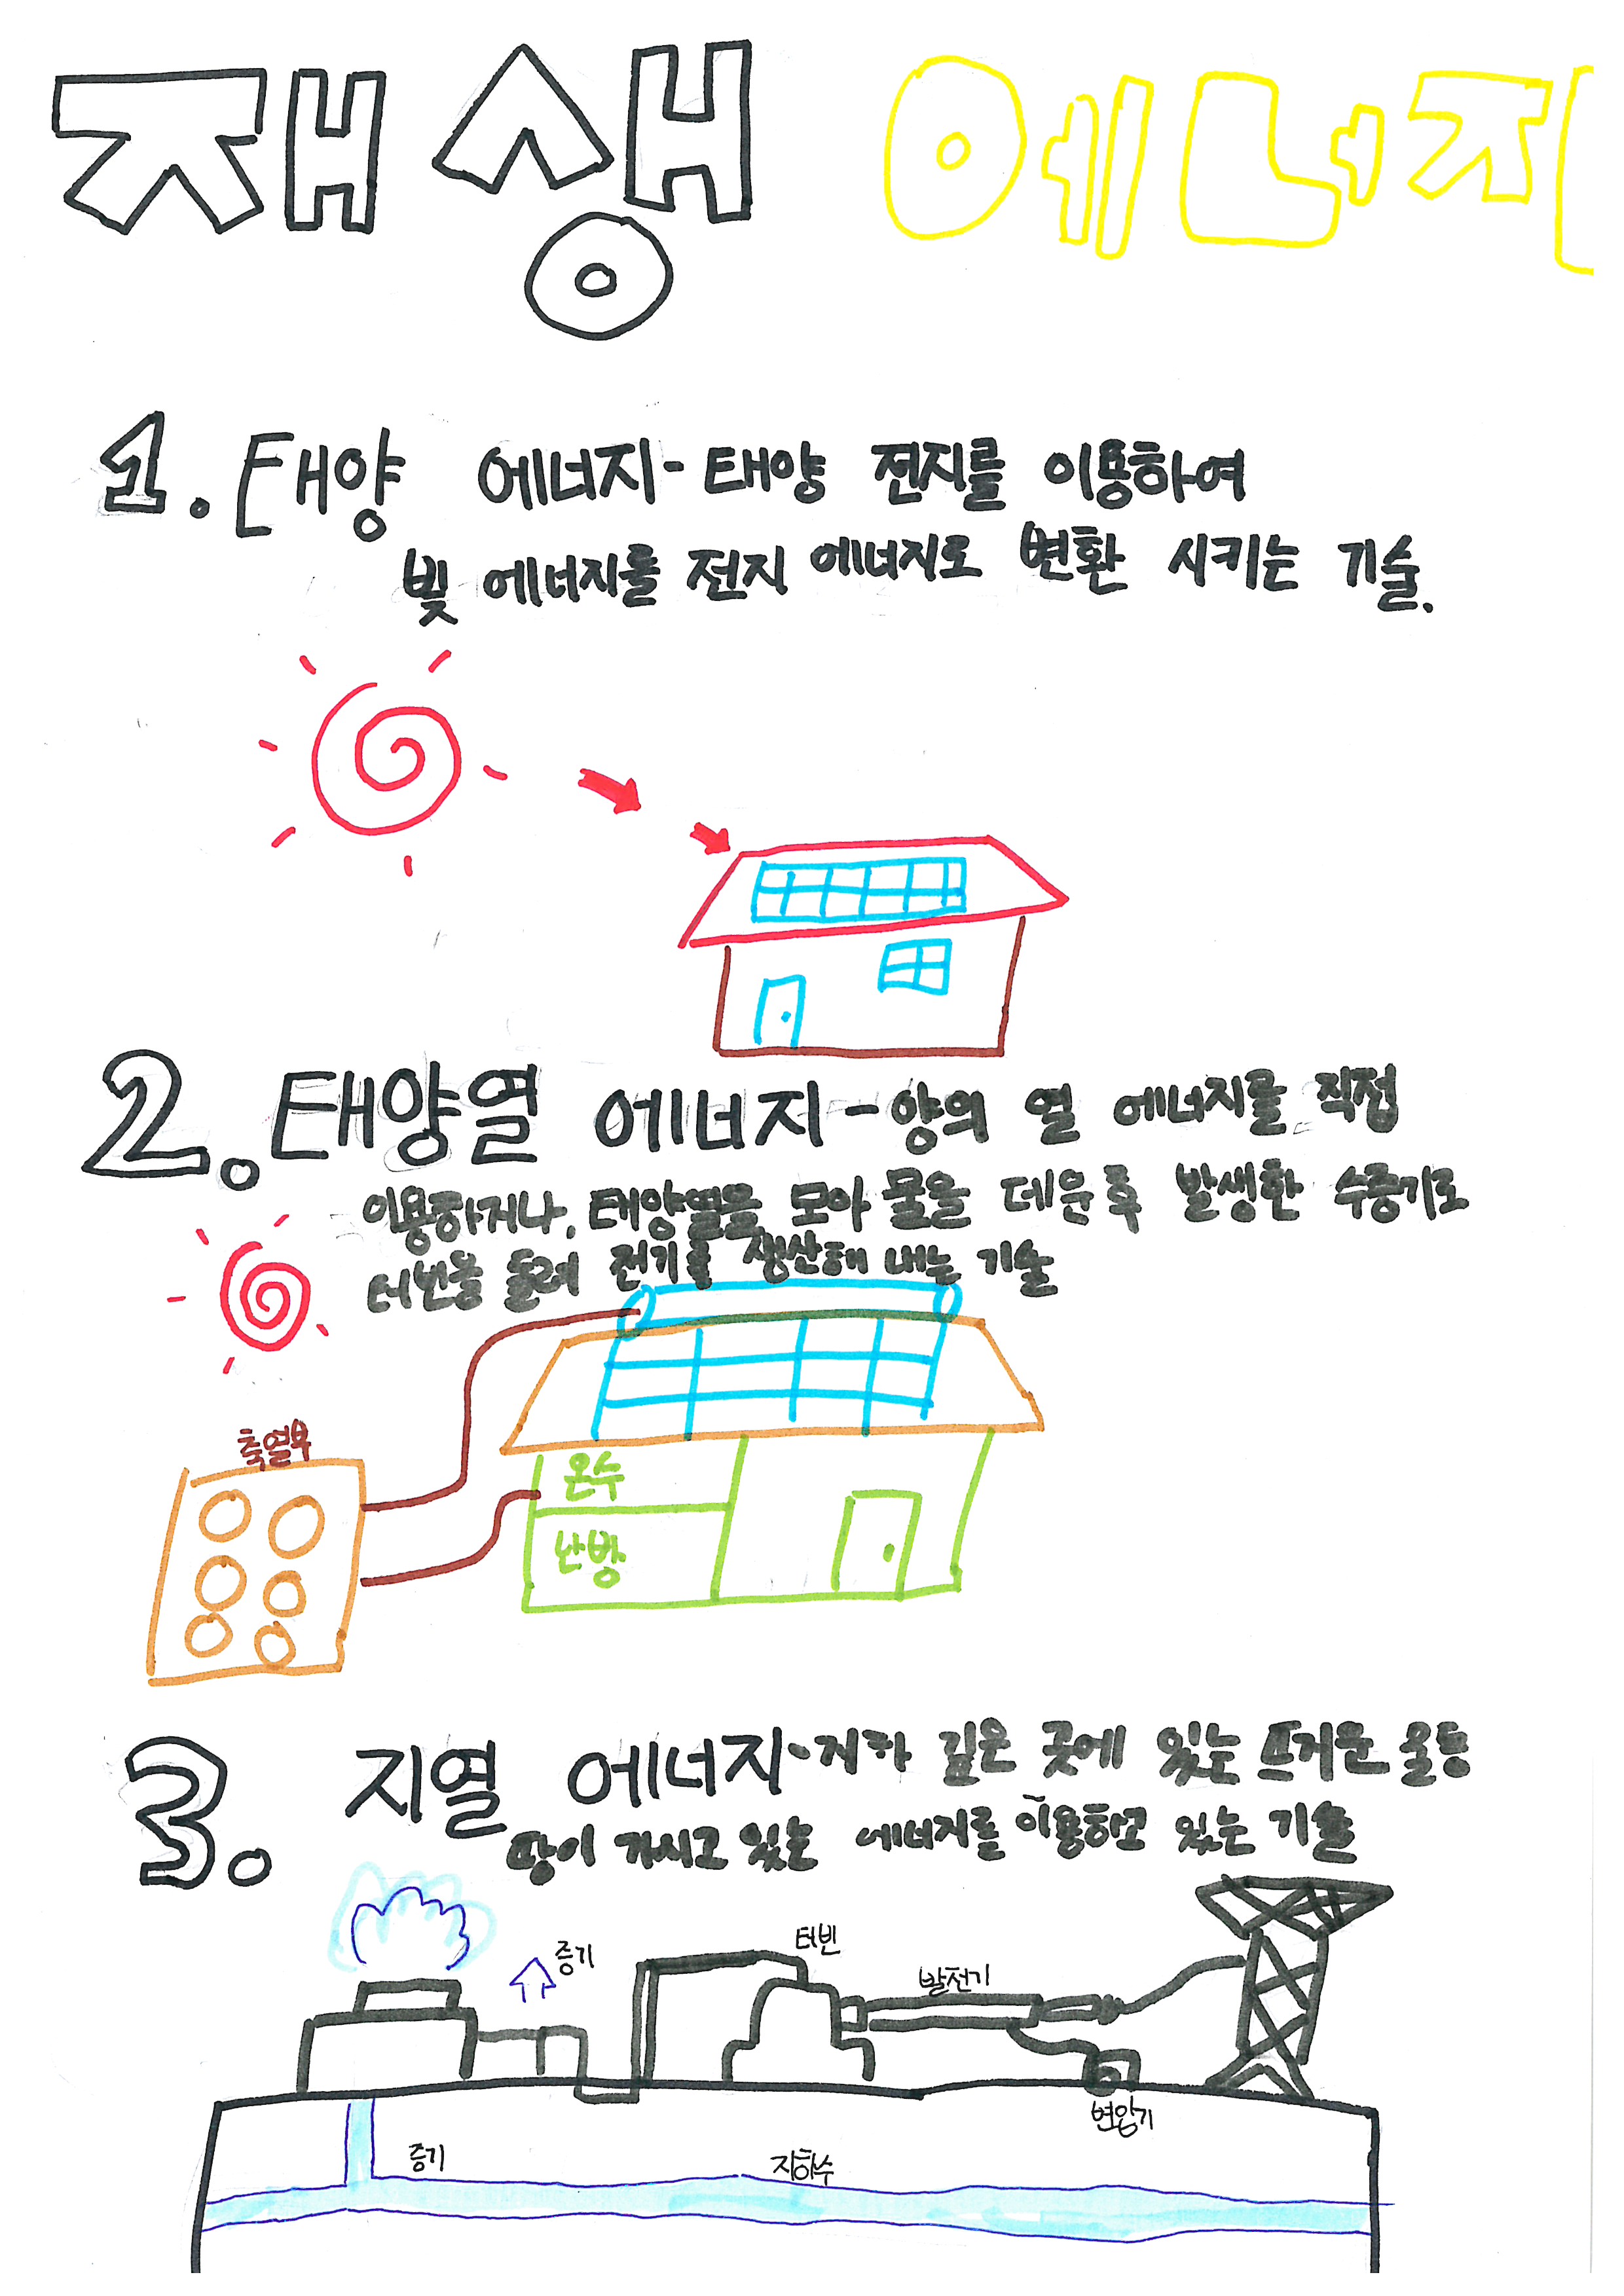 재생 에너지
1. 태양 에너지 - 태양 전지를 이용하여
빛 에너지를 전지 에너지로 변환 시키는 기술.
2. 태양열 에너지 - 양의 열 에너지를 직접
이용하거나, 태양열을 모아 물을 데운 후 발생한 수증기로
터빈을 돌려 전기를 생산해 내는 기술
축열부
온수
난방
3. 지열 에너지 - 지하 깊은 곳에 있는 뜨거운 물등
땅이 가지고 있는 에너지를 이용하고 있는 기술
증기
터빈
발전기
변압기
증기
지하수